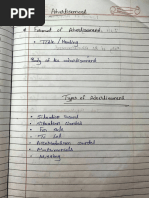 Advertisement
* Format of Advertisement:
• Title / Heading
Body of the advertisement
Type of Advertisement
• Situation vacant
• Situation wanted
• For sale
• To Let
• Accomodation wanted
• Matrimonials
• Missing